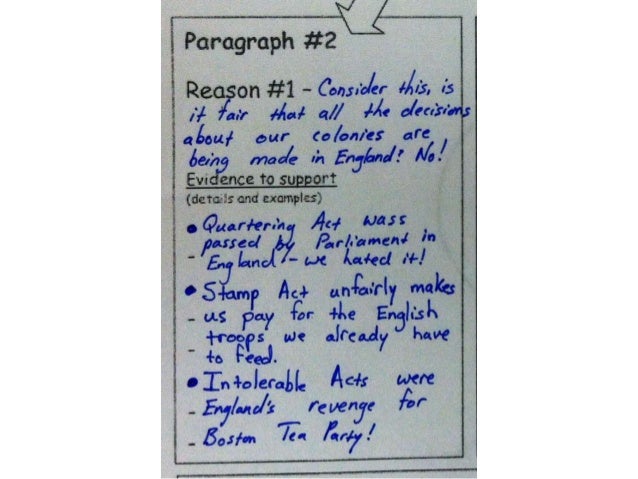 Paragraph #2
Reason #1 - Consider this, is
it fair that all the decisions
about our colonies are
being made in England? No!
Evidence to support
(details and examples)
• Quartering Act wass
passed by Parliament in
- England - we hated it!
• Stamp Act unfairly makes
- us pay for the English
troops we already have
- to feed.
• Intolerable Acts were
- England's revenge for
- Boston Tea Party!